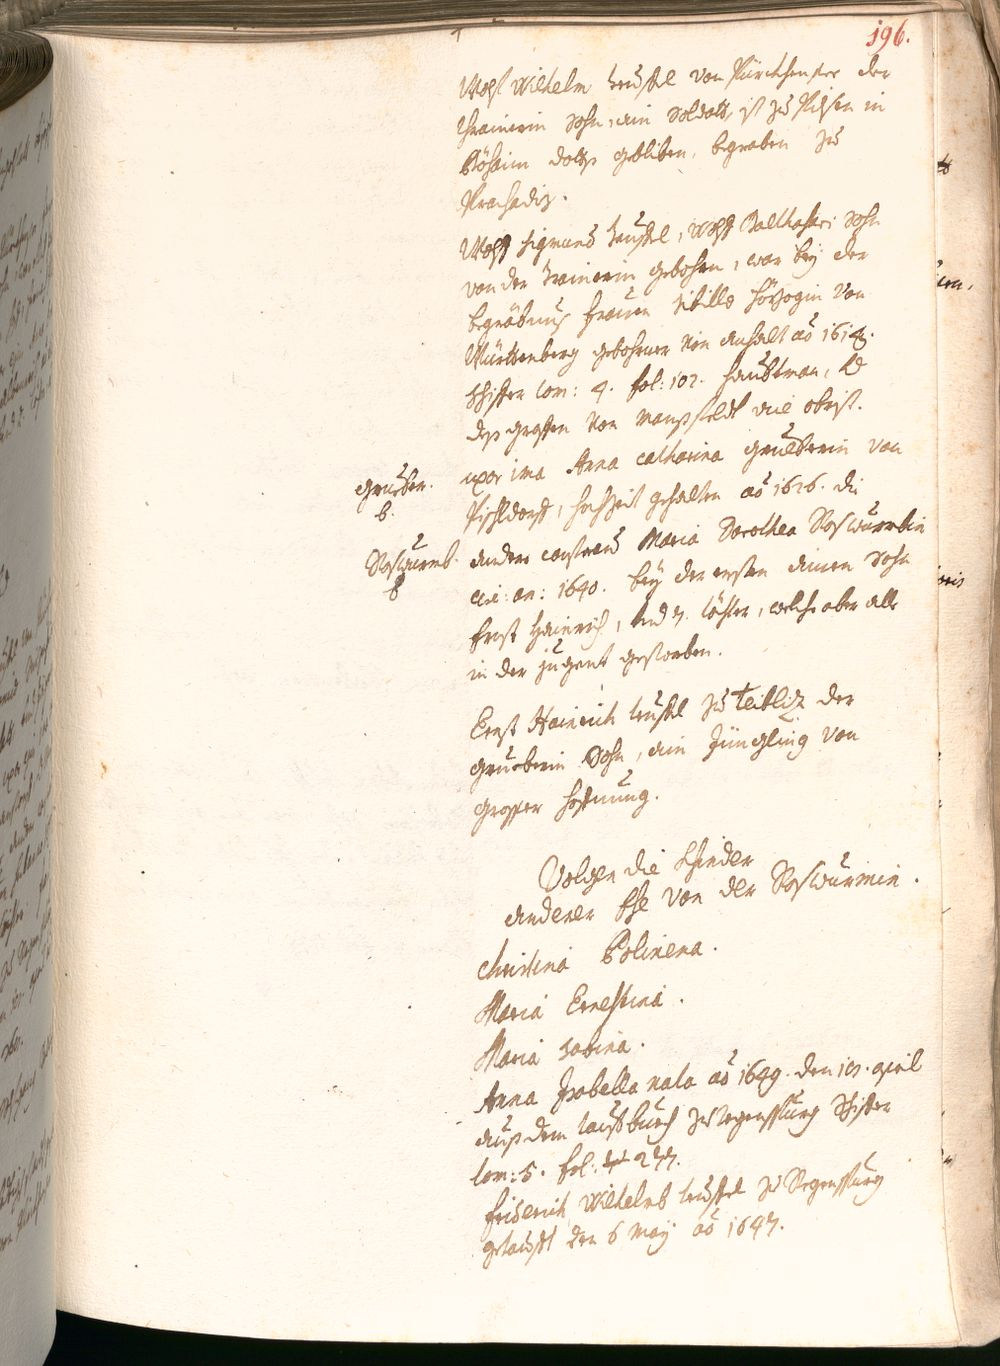 196.
Wolf Wilhelm Teufel von Pirckhensee der
Trainerin Sohn, ein Soldat, ist zu Pilsen in
Böheim dodts gebliben, begraben zu
Prachadiz.
Wolff Sigmund Teuffel, Wolff Balthasar Sohn
von der Trainerin gebohren, war bey der
begräbnus frauen Sibilla Hörzogin von
Württenberg gebohrner von Anhalt aō 1614.
tom: 4. fol: 102. haubtman,
des graffen von Mansfeldt
Grueber. uxor ima Anna Catharina Grueberin von
b. Pischldorff, hochzeit gehalten aō 1626. die
Roswurmb. andere Maria Dorothea Roswurmbin
b an: 1640. bey der ersten einen Sohn
Ernst Heinrich, und 7. töchter, welche aber alle
in der jugent gestorben.
Ernst Hainrich Teufel zu Teibliz der
Grueberin Sohn, ein Jüngling von
grosser hoffnung.
Volgen die Khinder
anderer Ehe von der Roswurmin.
Christina Polixena.
Maria Ernestina.
Maria Sabina.
Anna Isabella nata aō 1649. den 10. april
auß dem tauffbuch zu Regenspurg
tom: 5. fol: 277.
Friderich Wilhelmb Teuffel zu Regenspurg
getaufft den 6 May aō 1647.